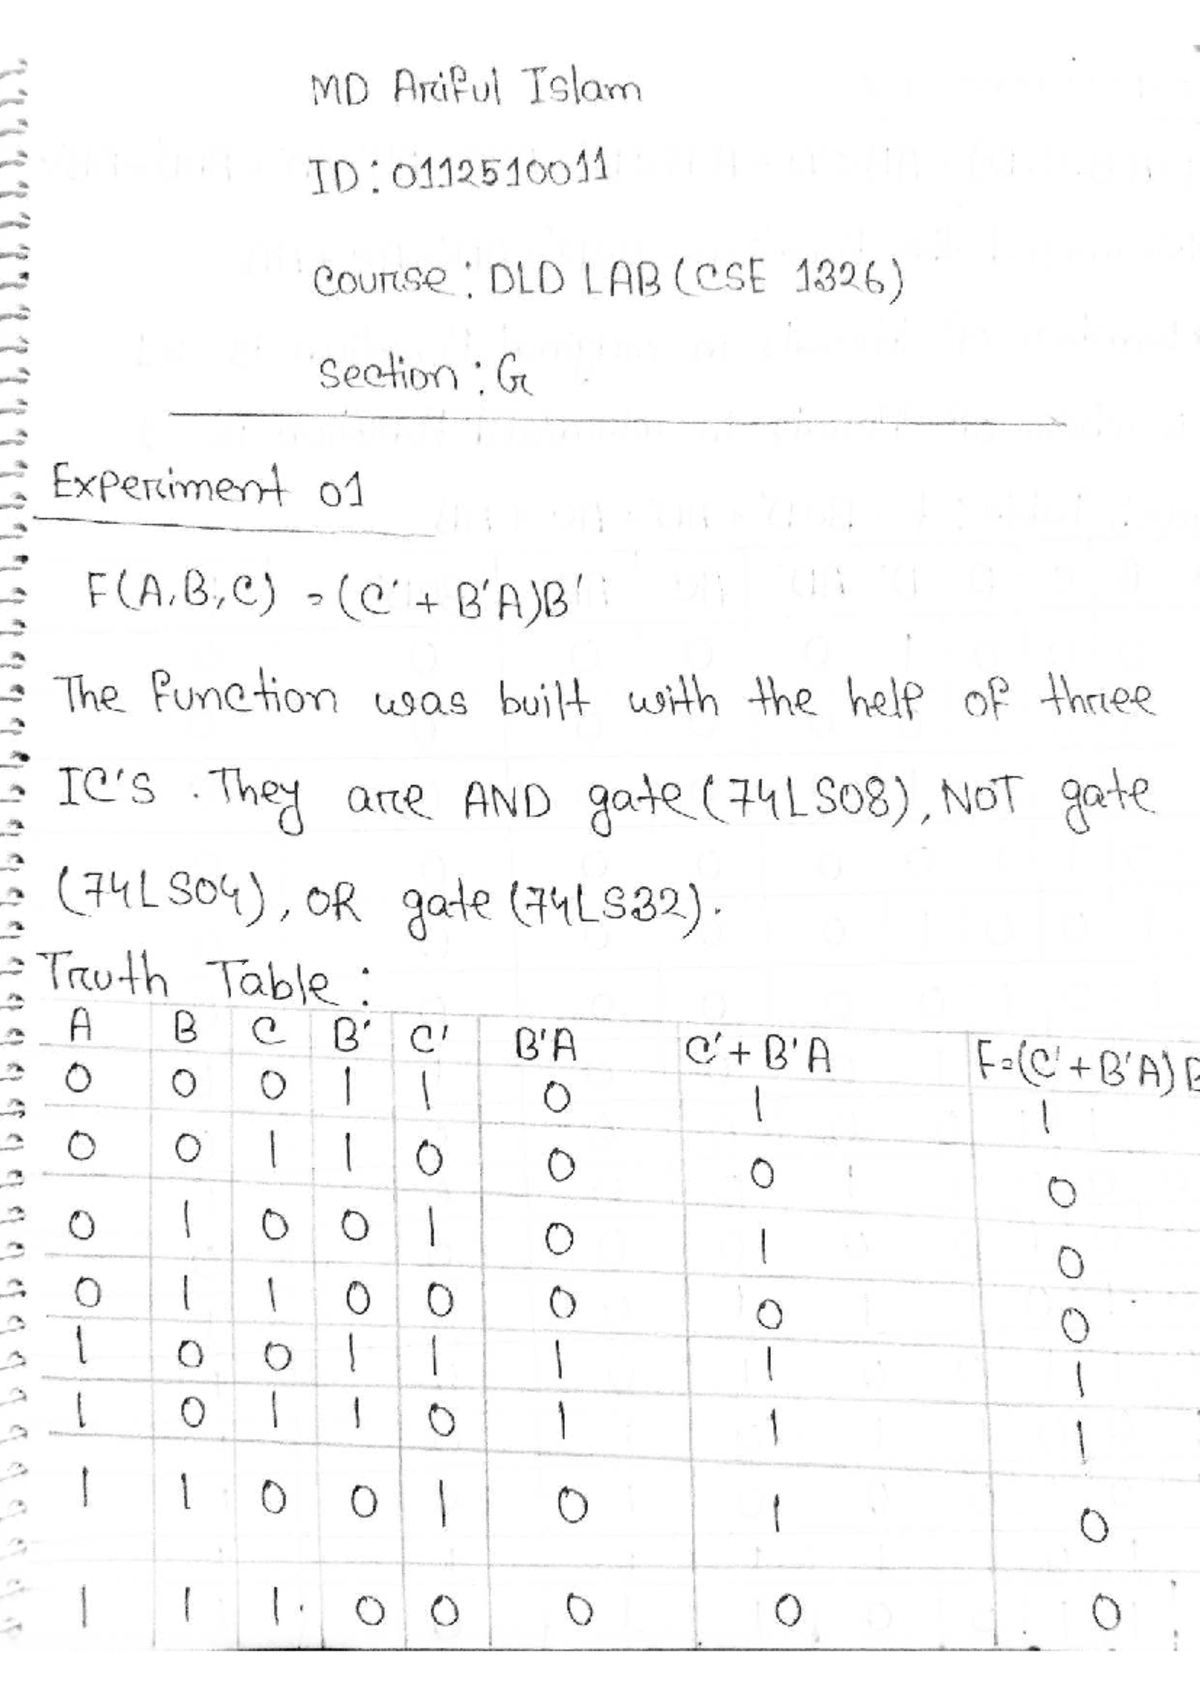 MD Ariful Islam
ID: 0112510011
Course: DLD LAB (CSE 1326)
Section: G
Experiment 01
F(A,B,C) = (C' + B'A)B'
The function was built with the help of three
IC's. They are AND gate (74LS08), NOT gate
(74LS04), OR gate (74LS32).
Truth Table:
A B C B' C' B'A C'+B'A F=(C'+B'A)B
0 0 0 1 1 0 1 1
0 0 1 1 0 0 0 0
0 1 0 0 1 0 1 0
0 1 1 0 0 0 0 0
1 0 0 1 1 1 1 1
1 0 1 1 0 1 1 1
1 1 0 0 1 0 1 0
1 1 1 0 0 0 0 0